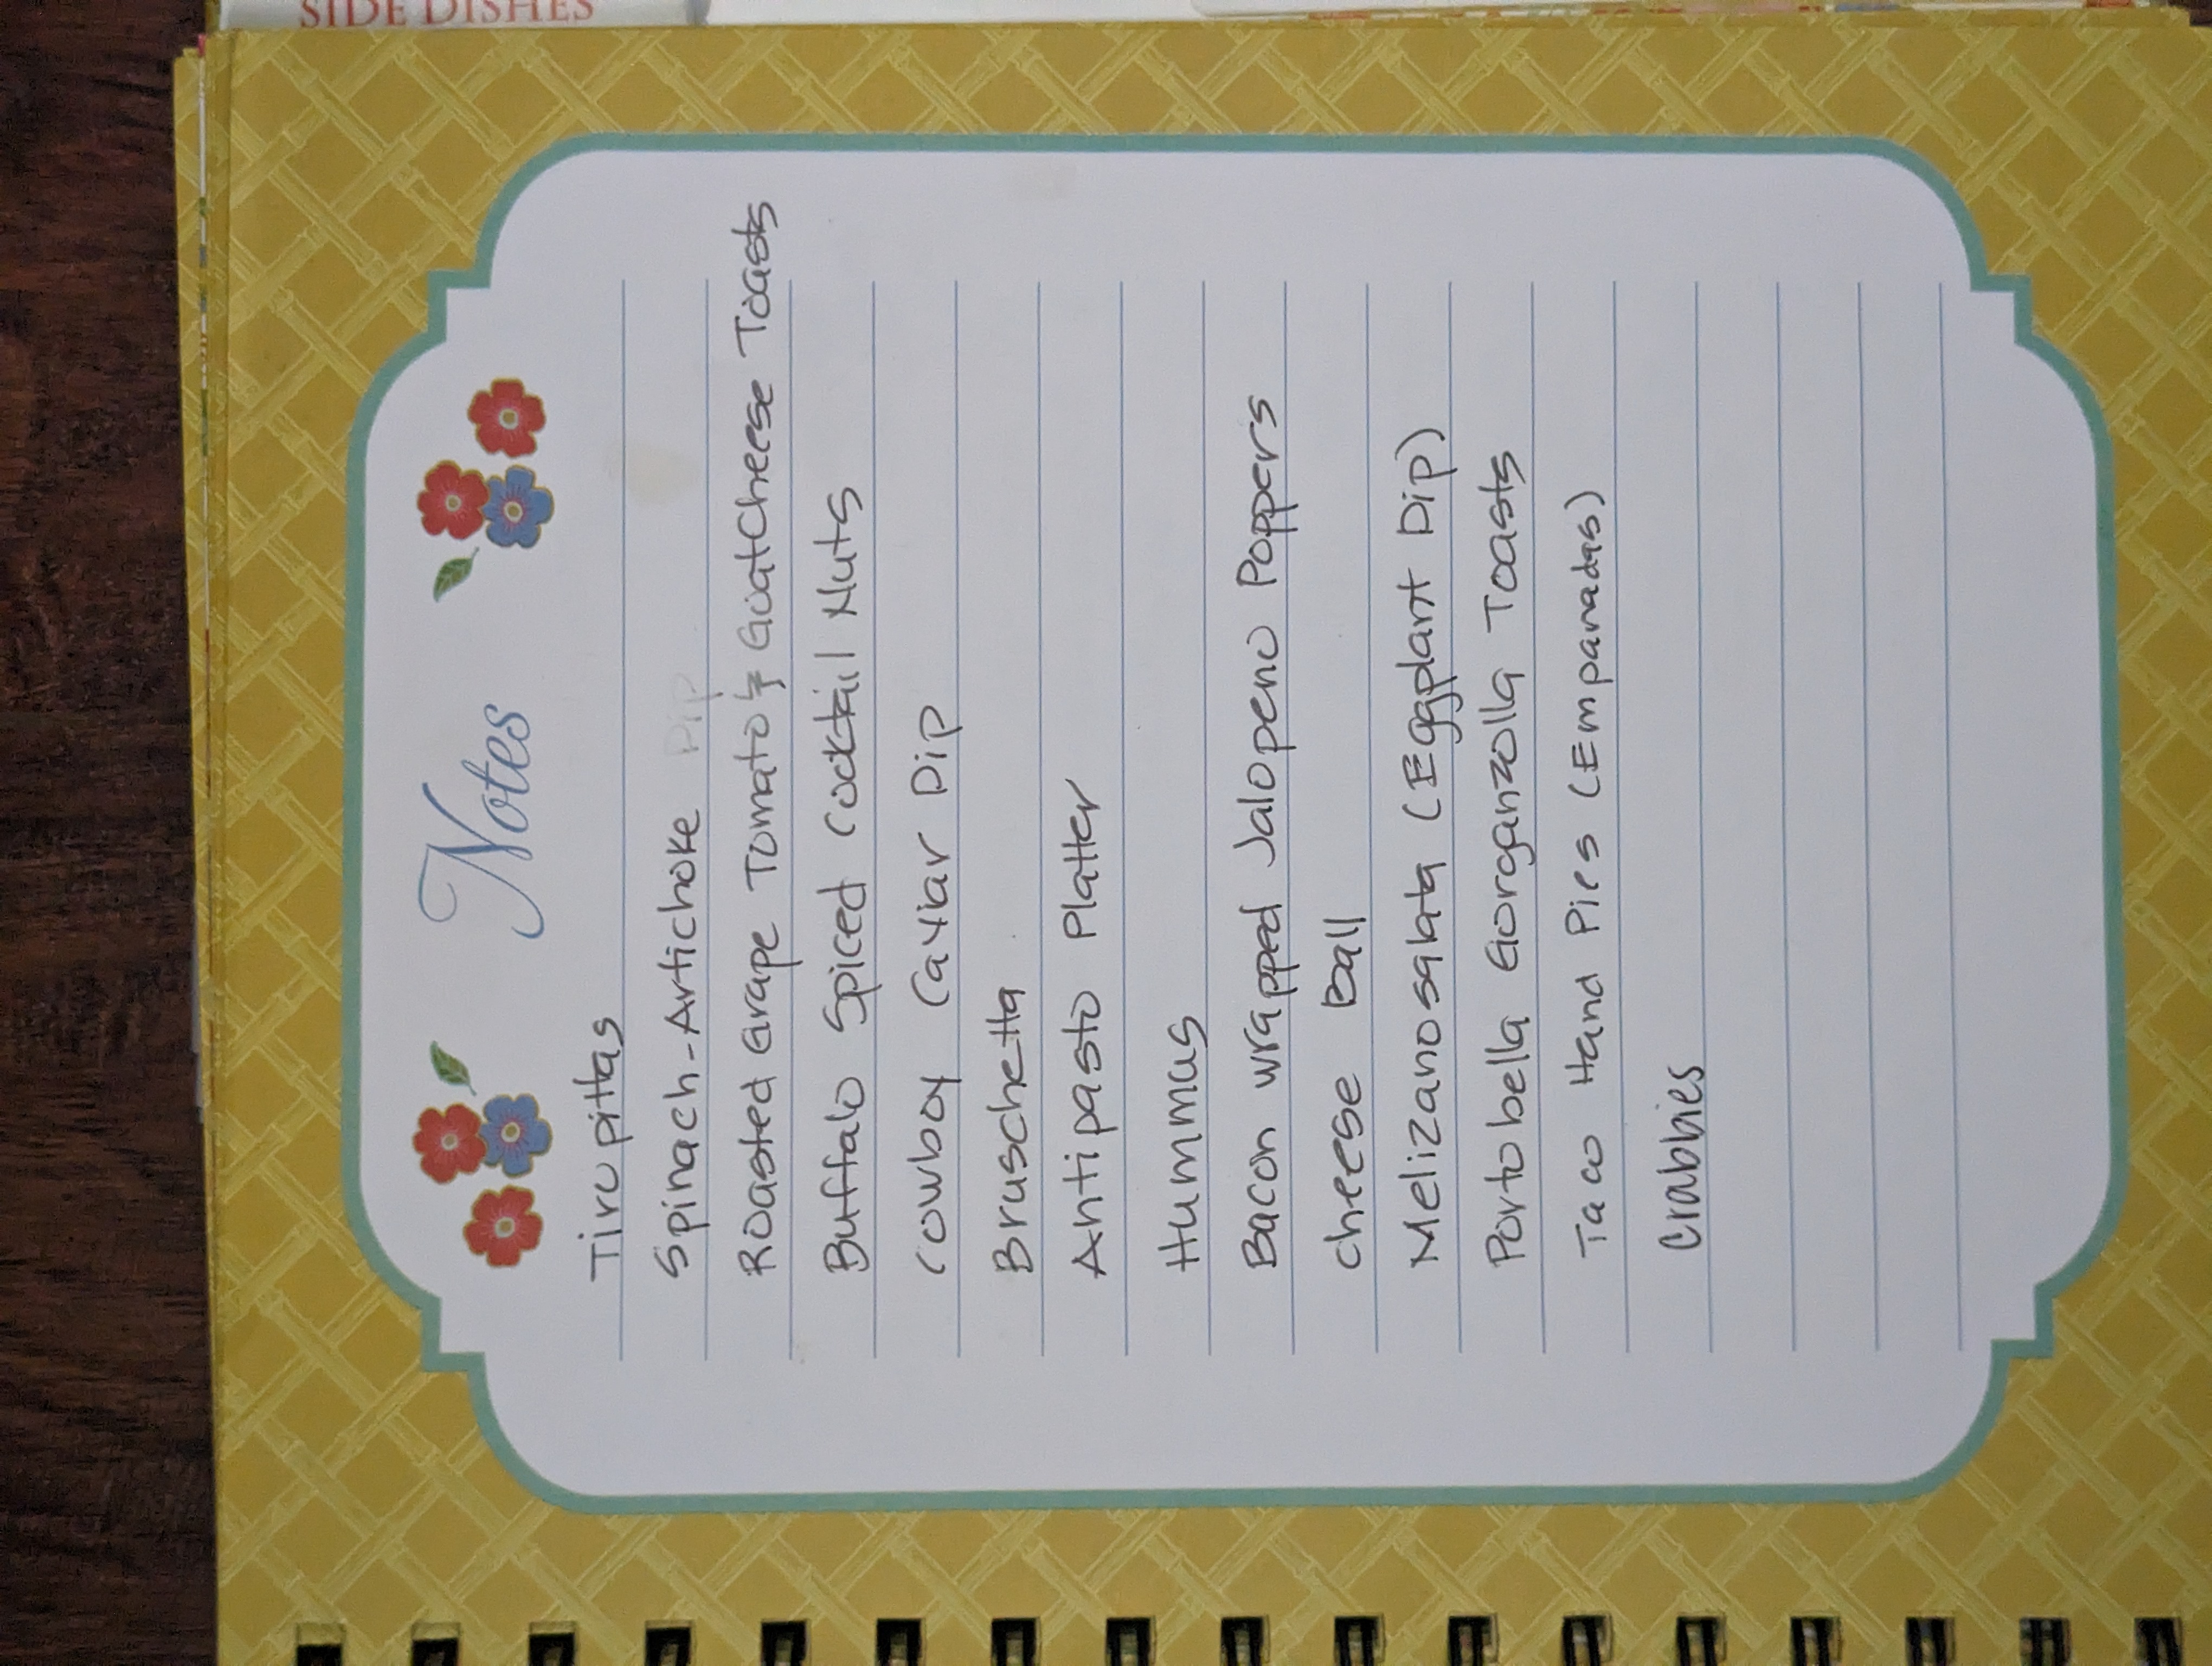 SIDE DISHES
Notes
Tiropittas
Spinach-Artichoke Dip
Roasted Grape Tomato & Goat Cheese Toasts
Buffalo Spiced Cocktail Nuts
Cowboy Caviar Dip
Bruschetta
Antipasto Platter
Hummus
Bacon wrapped Jalopeno Poppers
Cheese Ball
Melizanosalata (Eggplant Dip)
Portobella Gorganzolla Toasts
Taco Hand Pies (Empanadas)
Crabbies